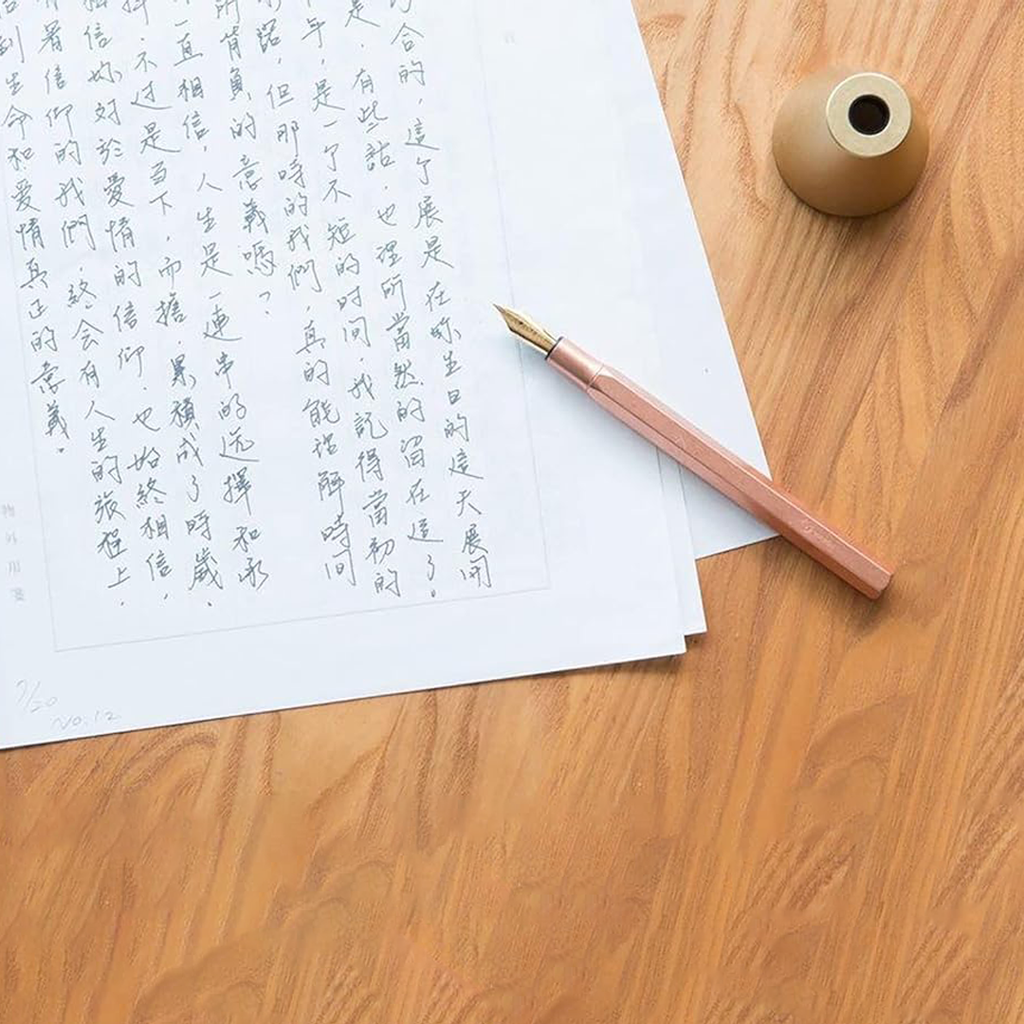 合的，這个展是在妳生日的這天展開
是，有些話，也理所當然的留在這了。
年，是一个不短的时间，我記得當初的
諾，但那時的我們，真的能理解時间
所背負的意義嗎？
一直相信，人生是一連串的选擇和承
不过是当下，而擔，累積成了時歲。
相信妳对於愛情的信仰，也始終相信，
著信仰的我們，終会有人生的旅程上，
到生命和爱情真正的意義。
物外用箋
7/20
No.12